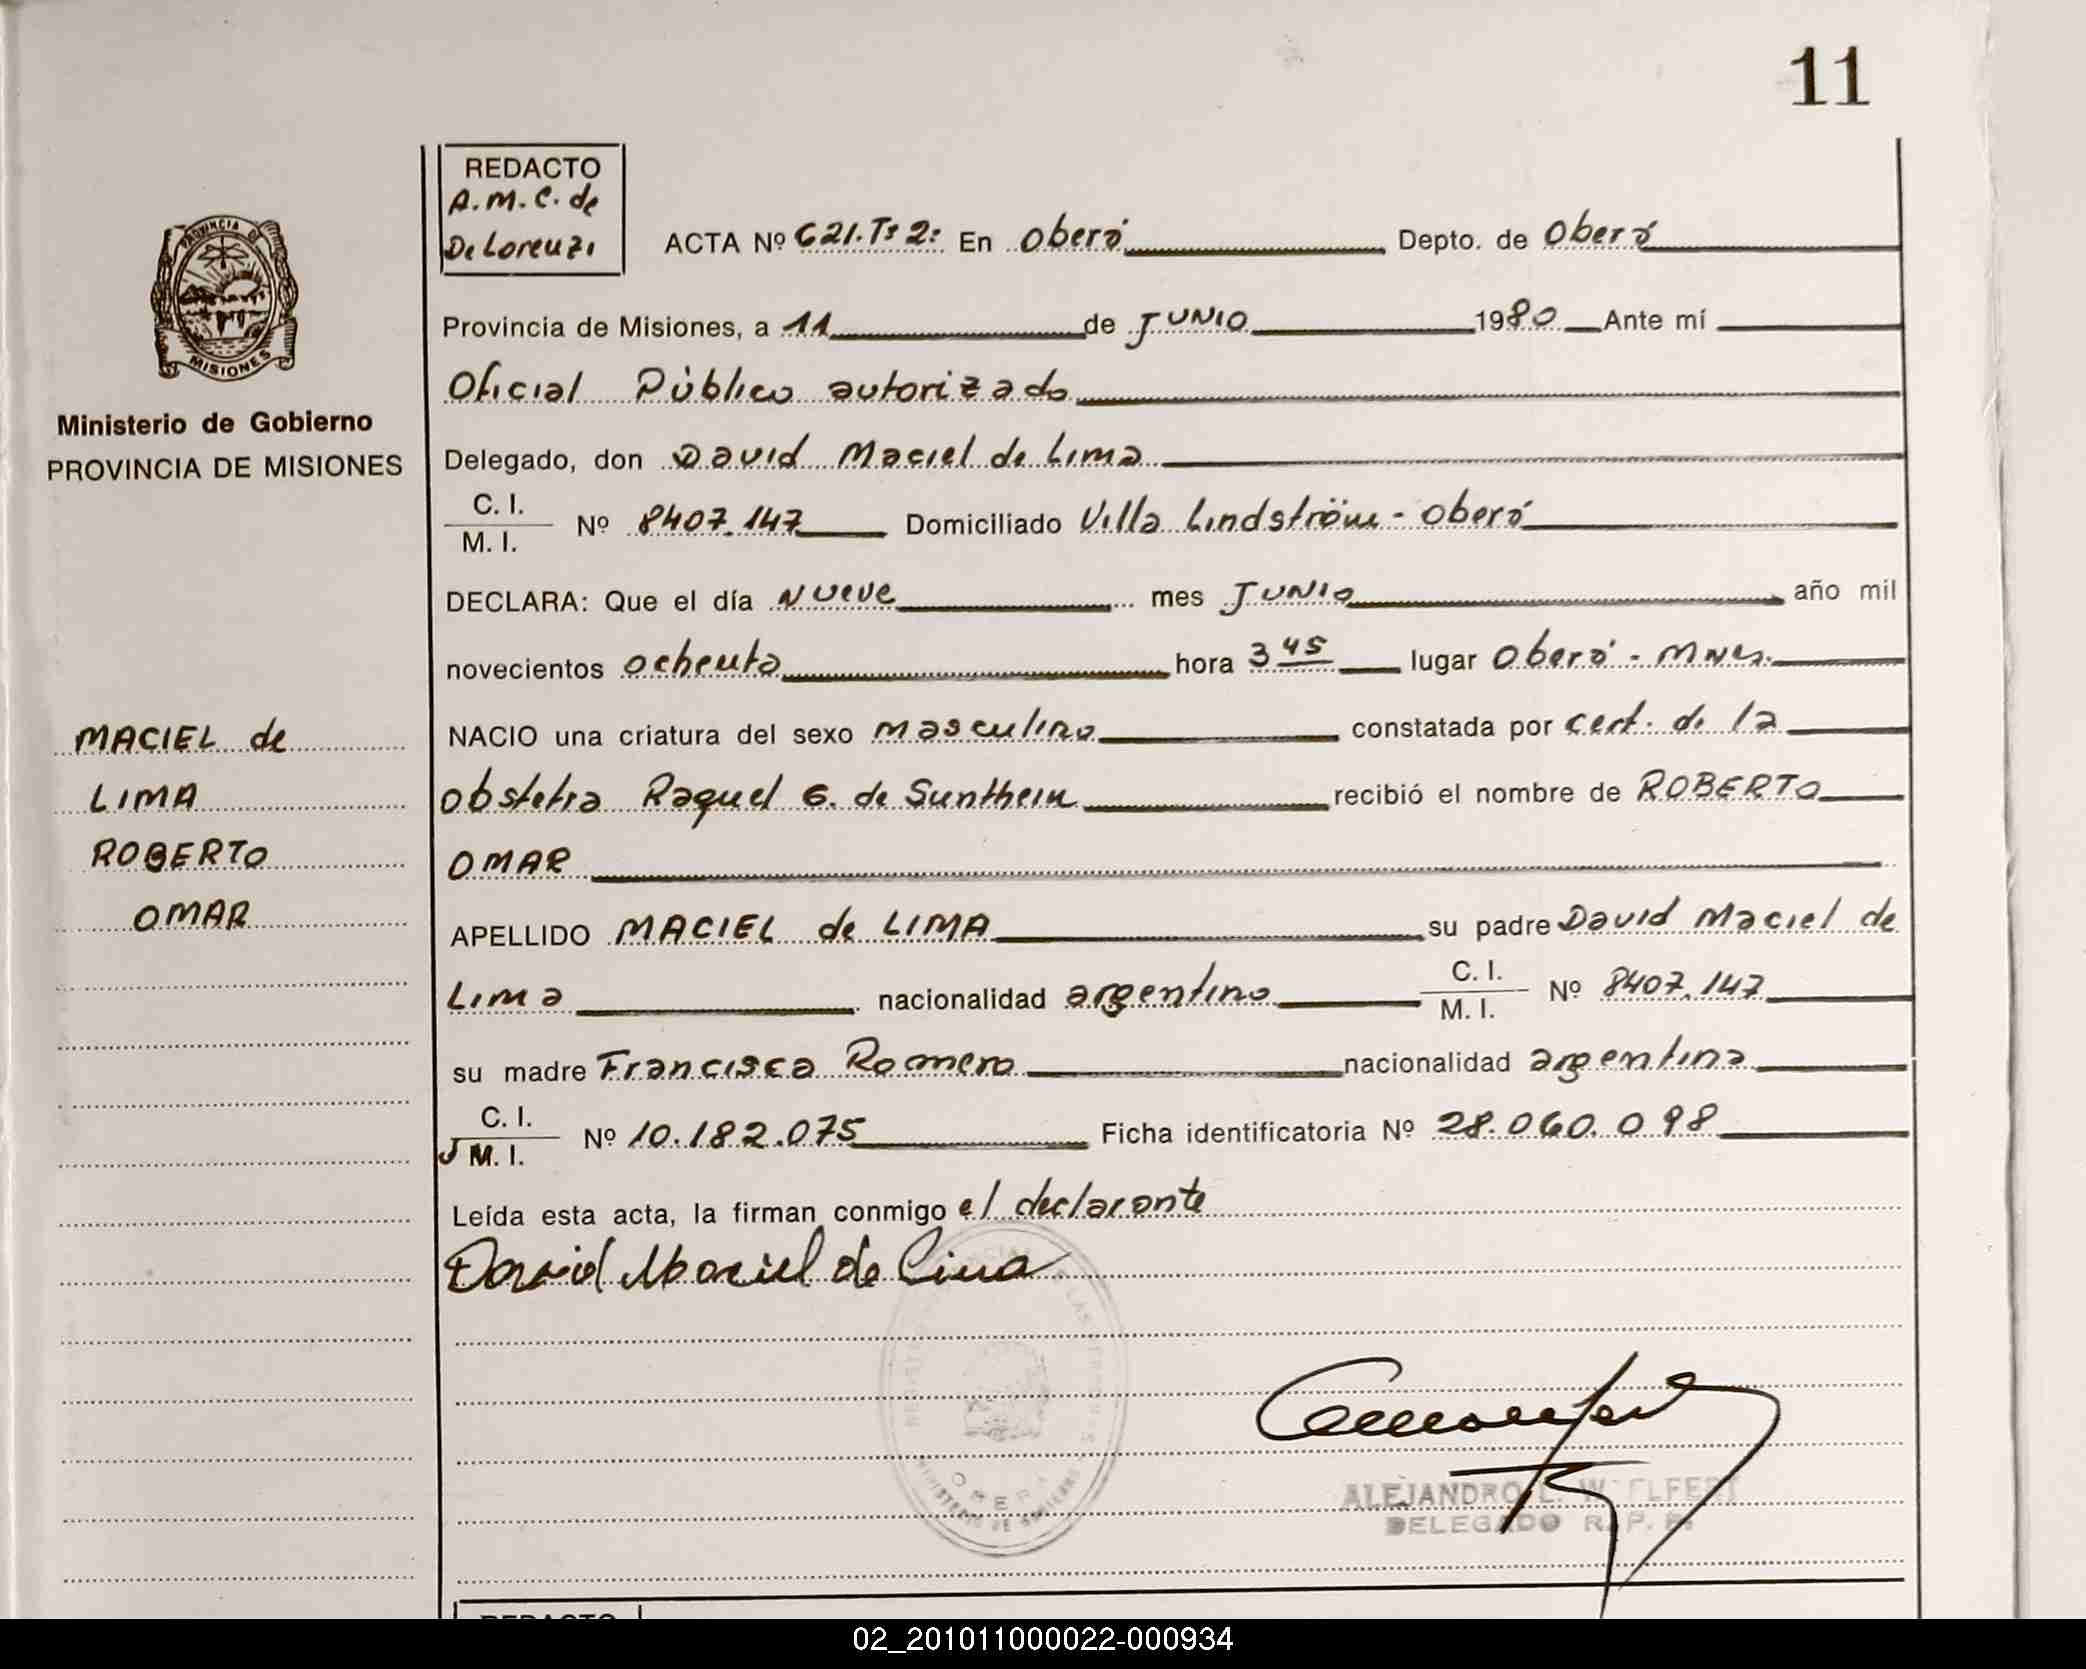 11
REDACTO
A.M.C. de
De Lorenzi
ACTA Nº 621.Tº 2: En Oberá Depto. de Oberá
PROVINCIA DE
MISIONES
Provincia de Misiones, a 11 de JUNIO 1980 Ante mí
Oficial Público autorizado
Ministerio de Gobierno
PROVINCIA DE MISIONES
Delegado, don David Maciel de Lima
C. I.
M. I. Nº 8407.147 Domiciliado Villa Lindström - Oberá
DECLARA: Que el día Nueve mes JUNIO año mil
novecientos ochenta hora 3 45 lugar Oberá - Mnes.
NACIO una criatura del sexo masculino constatada por cert. de la
obstetra Raquel G. de Sunthein recibió el nombre de ROBERTO
OMAR
MACIEL de
LIMA
ROBERTO
OMAR
APELLIDO MACIEL de LIMA su padre David Maciel de
Lima nacionalidad argentino C. I.
M. I. Nº 8407.147
su madre Francisca Romero nacionalidad argentina
C. I.
M. I. Nº 10.182.075 Ficha identificatoria Nº 28.060.098
Leída esta acta, la firman conmigo el declarante
David Maciel de Lima
OBERA
MINISTERIO DE GOBIERNO
ALEJANDRO L.
DELEGADO R. P. P.
REDACTO
02_201011000022-000934